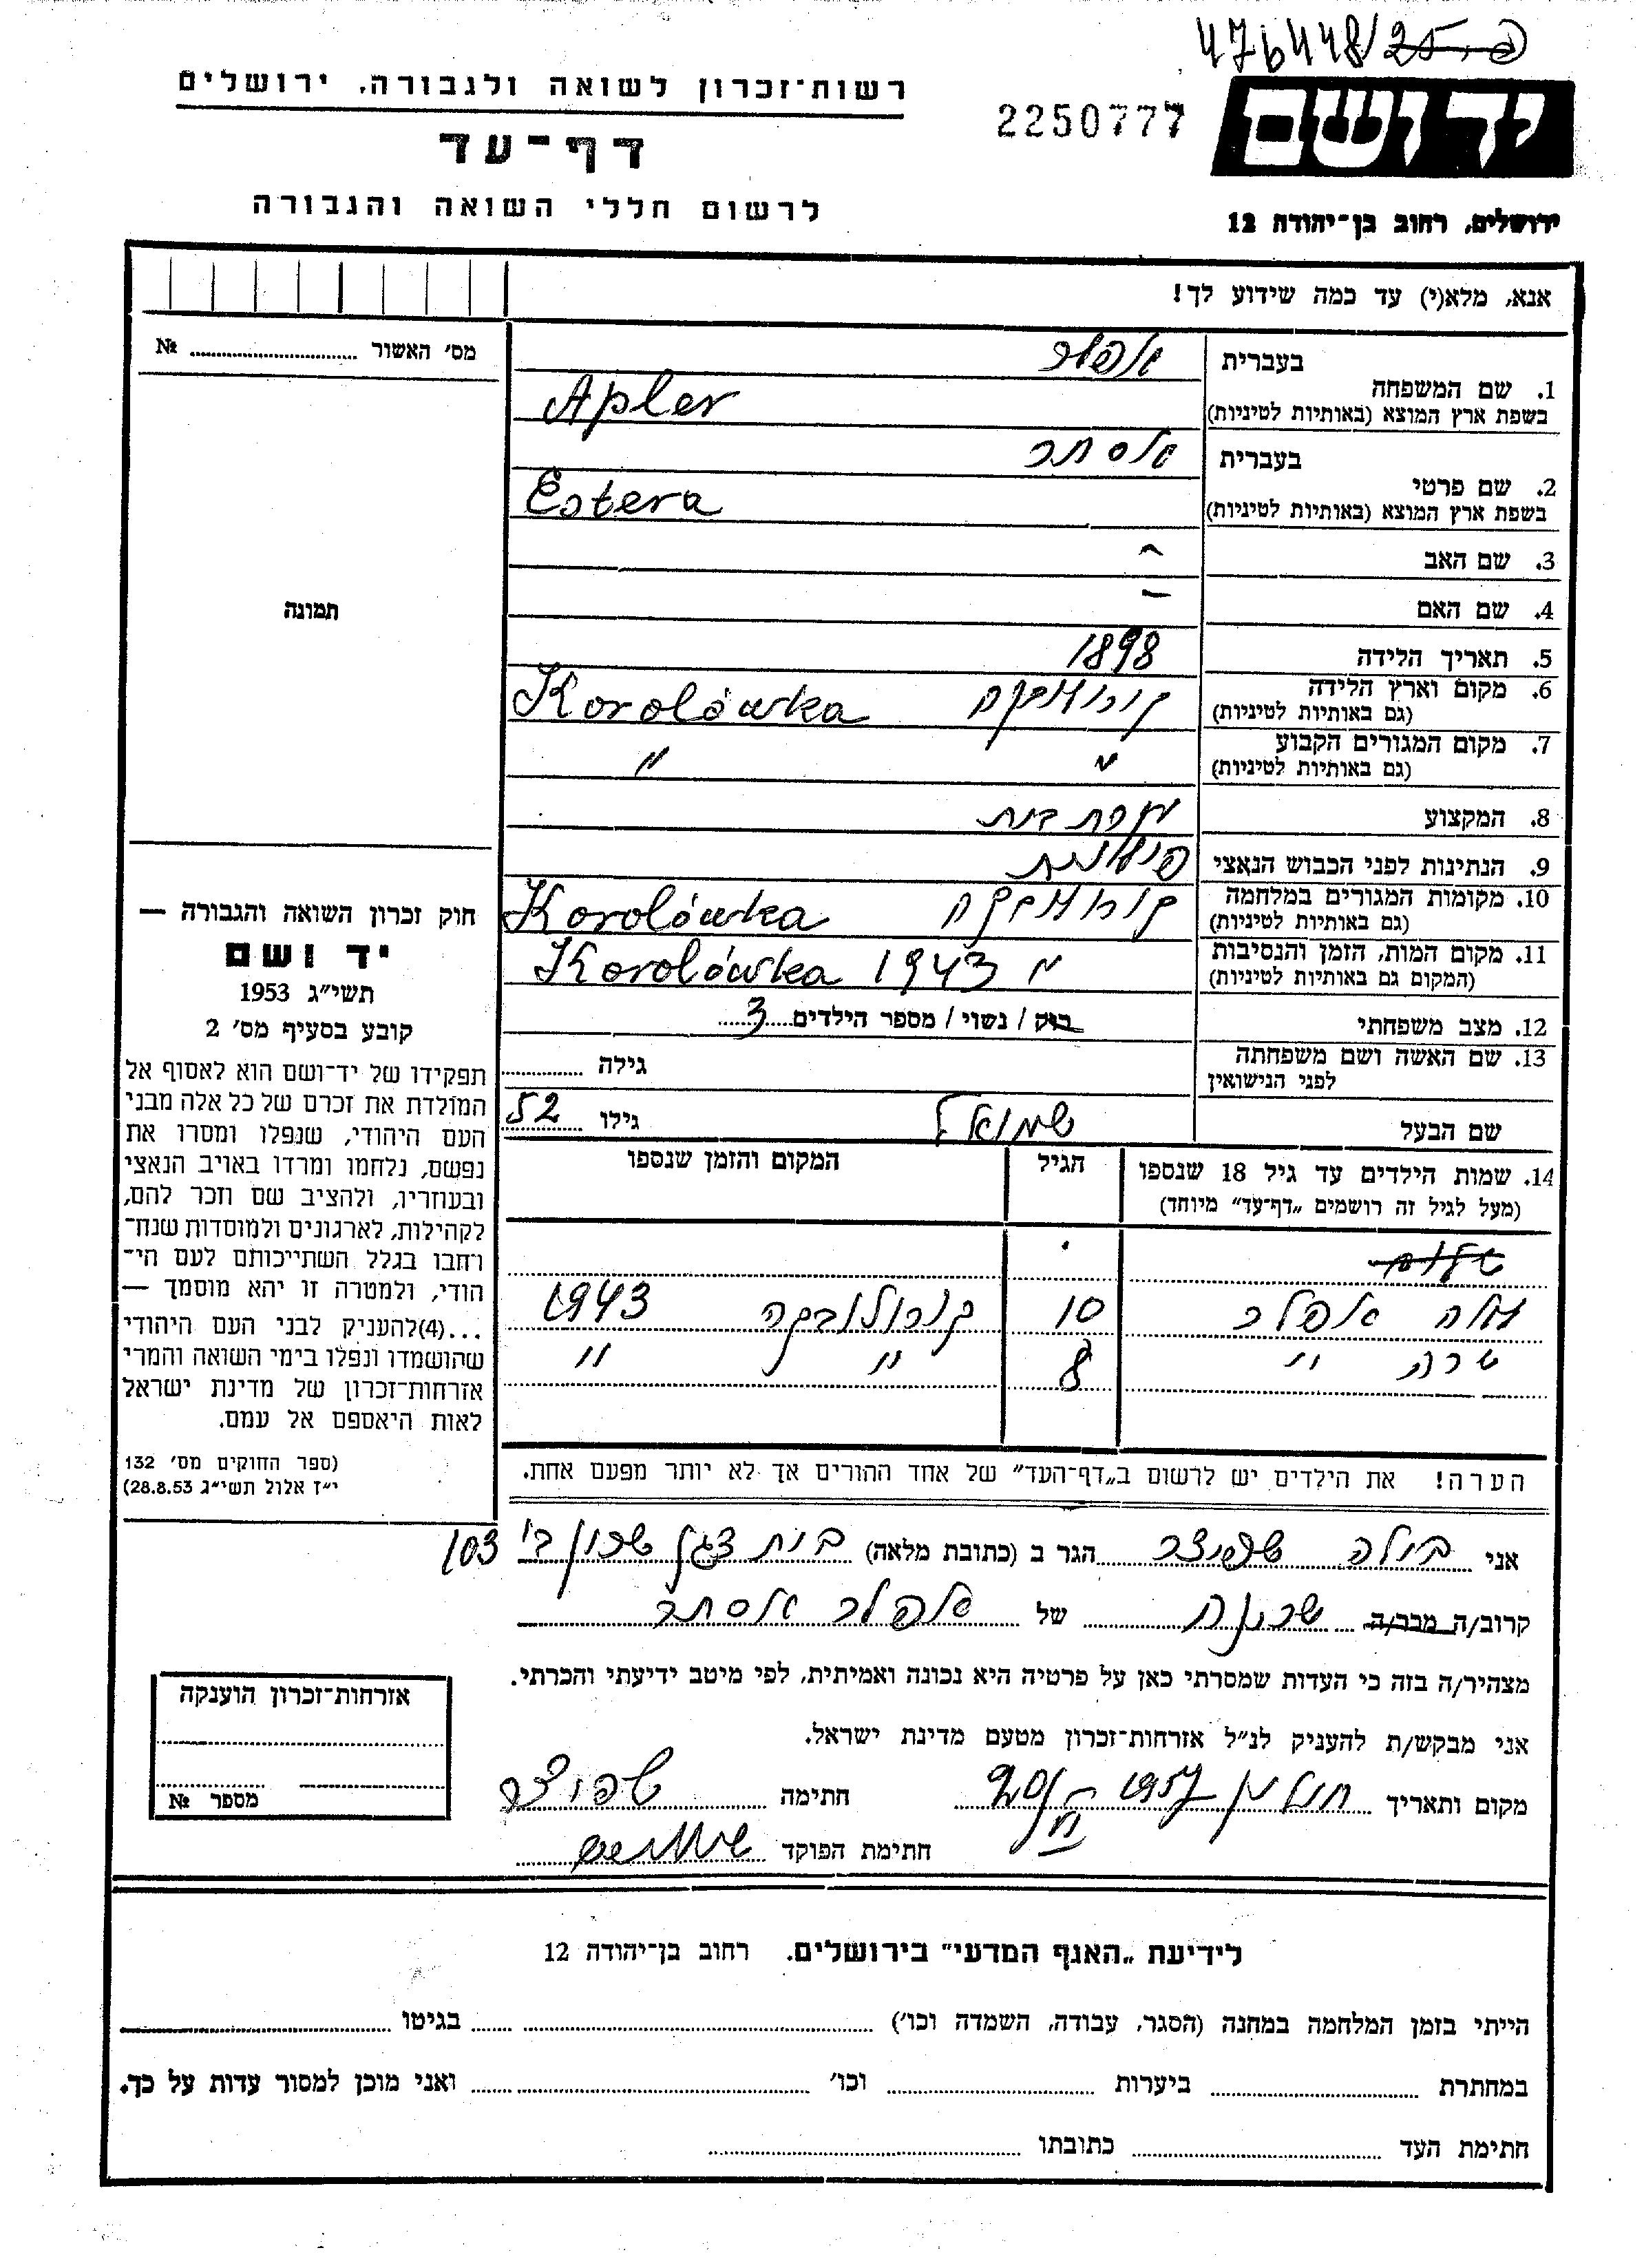 476448/25
רשות־זכרון לשואה ולגבורה, ירושלים
2250777
יד ושם
דף־עד
לרשום חללי השואה והגבורה
ירושלים, רחוב בן־יהודה 12
אנא, מלא(י) עד כמה שידוע לך!
מס' האשור № ........
בעברית אפלר
1. שם המשפחה
בשפת ארץ המוצא (באותיות לטיניות) Apler
בעברית אסתר
2. שם פרטי
בשפת ארץ המוצא (באותיות לטיניות) Estera
3. שם האב -
4. שם האם -
תמונה
5. תאריך הלידה 1898
6. מקום וארץ הלידה קורולובקה Korolówka
(גם באותיות לטיניות)
7. מקום המגורים הקבוע " "
(גם באותיות לטיניות)
8. המקצוע עקרת בית
9. הנתינות לפני הכבוש הנאצי פולנית
10. מקומות המגורים במלחמה קורולובקה Korolówka
(גם באותיות לטיניות)
11. מקום המות, הזמן והנסיבות " 1943 Korolówka
(המקום גם באותיות לטיניות)
12. מצב משפחתי רוק / נשוי / מספר הילדים 3
13. שם האשה ושם משפחתה גילה ........
לפני הנישואין
שם הבעל שמואל גילו 52
14. שמות הילדים עד גיל 18 שנספו הגיל המקום והזמן שנספו
(מעל לגיל זה רושמים „דף־עד" מיוחד)
אפלר 10 קורולובקה 1943
שרה " 8 " "
חוק זכרון השואה והגבורה —
יד ושם
תשי"ג 1953
קובע בסעיף מס' 2
תפקידו של יד־ושם הוא לאסוף אל
המולדת את זכרם של כל אלה מבני
העם היהודי, שנפלו ומסרו את
נפשם, נלחמו ומרדו באויב הנאצי
ובעוזריו, ולהציב שם וזכר להם,
לקהילות, לארגונים ולמוסדות שנח־
רחבו בגלל השתייכותם לעם הי־
הודי, ולמטרה זו יהא מוסמך —
...(4)להעניק לבני העם היהודי
שהושמדו ונפלו בימי השואה והמרי
אזרחות־זכרון של מדינת ישראל
לאות היאספם אל עמם.
(ספר החוקים מס' 132
י"ז אלול תשי"ג 28.8.53)
הערה! את הילדים יש לרשום ב„דף־העד" של אחד ההורים אך לא יותר מפעם אחת.
אני שפיצר הגר ב (כתובת מלאה) שכון ב' 103
קרוב/ה מכר/ה שכנה של אפלר אסתר
מצהיר/ה בזה כי העדות שמסרתי כאן על פרטיה היא נכונה ואמיתית, לפי מיטב ידיעתי והכרתי.
אני מבקש/ת להעניק לנ"ל אזרחות־זכרון מטעם מדינת ישראל.
מקום ותאריך חולון 1957 חתימה שפיצר
חתימת הפוקד
אזרחות־זכרון הוענקה
מספר №
לידיעת „האנף המדעי" בירושלים. רחוב בן־יהודה 12
הייתי בזמן המלחמה במחנה (הסגר, עבודה, השמדה וכו') ........ בגיטו ........
במחתרת ........ ביערות ........ וכו' ........ ואני מוכן למסור עדות על כך.
חתימת העד ........ כתובתו ........